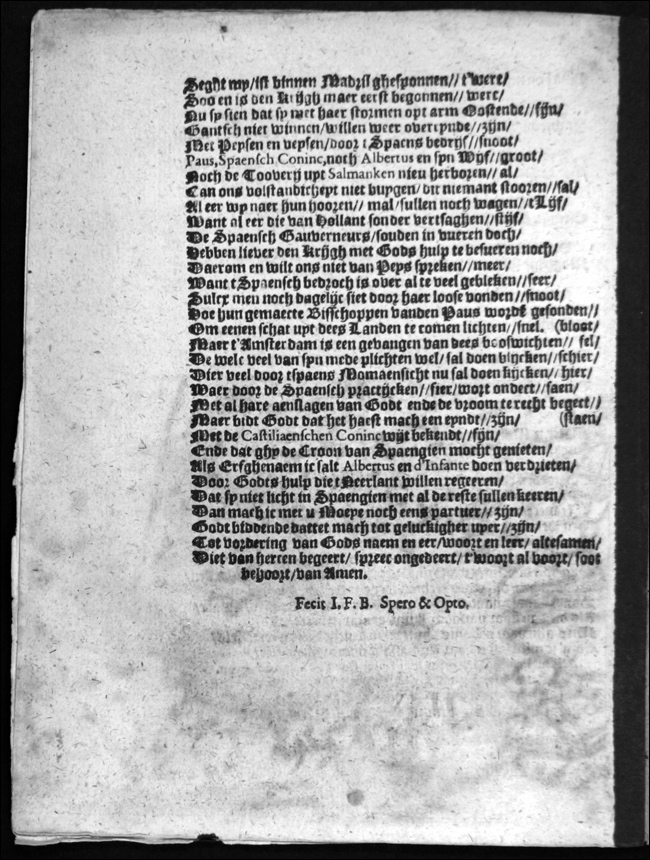 Seght my/ist binnen Madril ghesponnen// t'werc/
Soo en is den Krijgh maer eerst begonnen// werc/
Nu sy sien dat sy met haer stormen opt arm Oostende//sijn/
Gantsch niet winnen/willen weer overeynde//zijn/
Met Peysen en veysen/door t Spaens bedrijf//snoot/
Paus, Spaensch Coninc, noch Albertus en syn Wijf//groot/
Noch de Tooverij upt Salmanken nieu herboren// al/
Can ons volstandicheyt niet buygen/ dit niemant stooren//sal/
Al eer wy naer hun hooren// mal/sullen noch wagen//t Lijf/
Want al eer die van Hollant sonder vertsaghen//stijf/
De Spaensch Gauverneurs/souden in vueren doch/
Hebben liever den Krijgh met Gods hulp te besueren noch/
Daerom en wilt ons niet van Peys spreken//meer/
Want t Spaensch bedroch is over al te veel gebleken//seer/
Sulcx men noch dagelijc siet door haer loose vonden//snoot/
Hoe hun gemaecte Bisschoppen vanden Paus wordē gesonden//
Om eenen schat upt dees Landen te comen lichten//snel. (bloot/
Maer t'Amsterdam is een gevangen van dees boswichten// fel/
De welc veel van syn mede plichten wel/ sal doen blijcken//schier/
Dier veel door tspaens Momaensicht nu sal doen kijcken// hier/
Waer door de Spaensch practijcken//fier/wort ondect//saen/
Met al hare aenslagen van Godt ende de vroom te recht begect//
Maer bidt Godt dat het haest mach een eyndt//zijn/ (staen/
Met de Castiliaenschen Coninc wijt bekendt//sijn/
Ende dat ghy de Croon van Spaengien mocht genieten/
Als Erfghenaem ic salt Albertus en d'Infante doen verdrieten/
Door Godts hulp die t Neerlant willen regeeren/
Dat sy niet licht in Spaengien met al de reste sullen keeren/
Dan mach ic met u Moeye noch eens partuer//zijn/
Godt biddende dattet mach tot geluckigher uyer//zijn/
Tot vordering van Gods naem en eer/woort en leer/ altesamen/
Diet van herten begeert/ spreec ongedeert/ t'woort al voort/ soot
behoort/van Amen.
Fecit I. F. B. Spero & Opto.